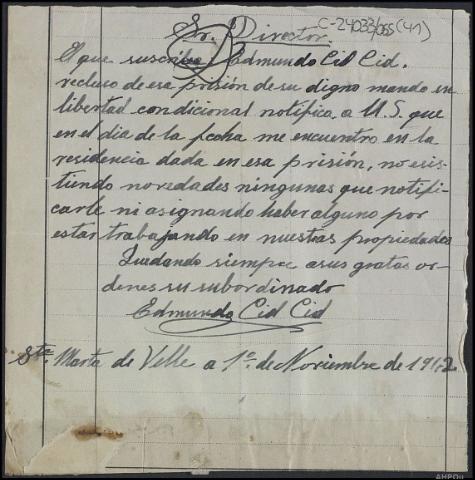 C-24033/065 (41)
Sr. Director.
El que suscribe Edmundo Cid Cid.
recluso de esa prisión de su digno mando en
libertad condicional notifica a U.S. que
en el dia de la fecha me encuentro en la
residencia dada en esa prisión, no esis-
tiendo novedades ningunas que notifi-
carle ni asignando haber alguno por
estar trabajando en nuestras propiedades
Quedando siempre a sus gratas or-
denes su subordinado
Edmundo Cid Cid
Sta. Marta de Velle a 1º. de Noviembre de 1942
AHPOu